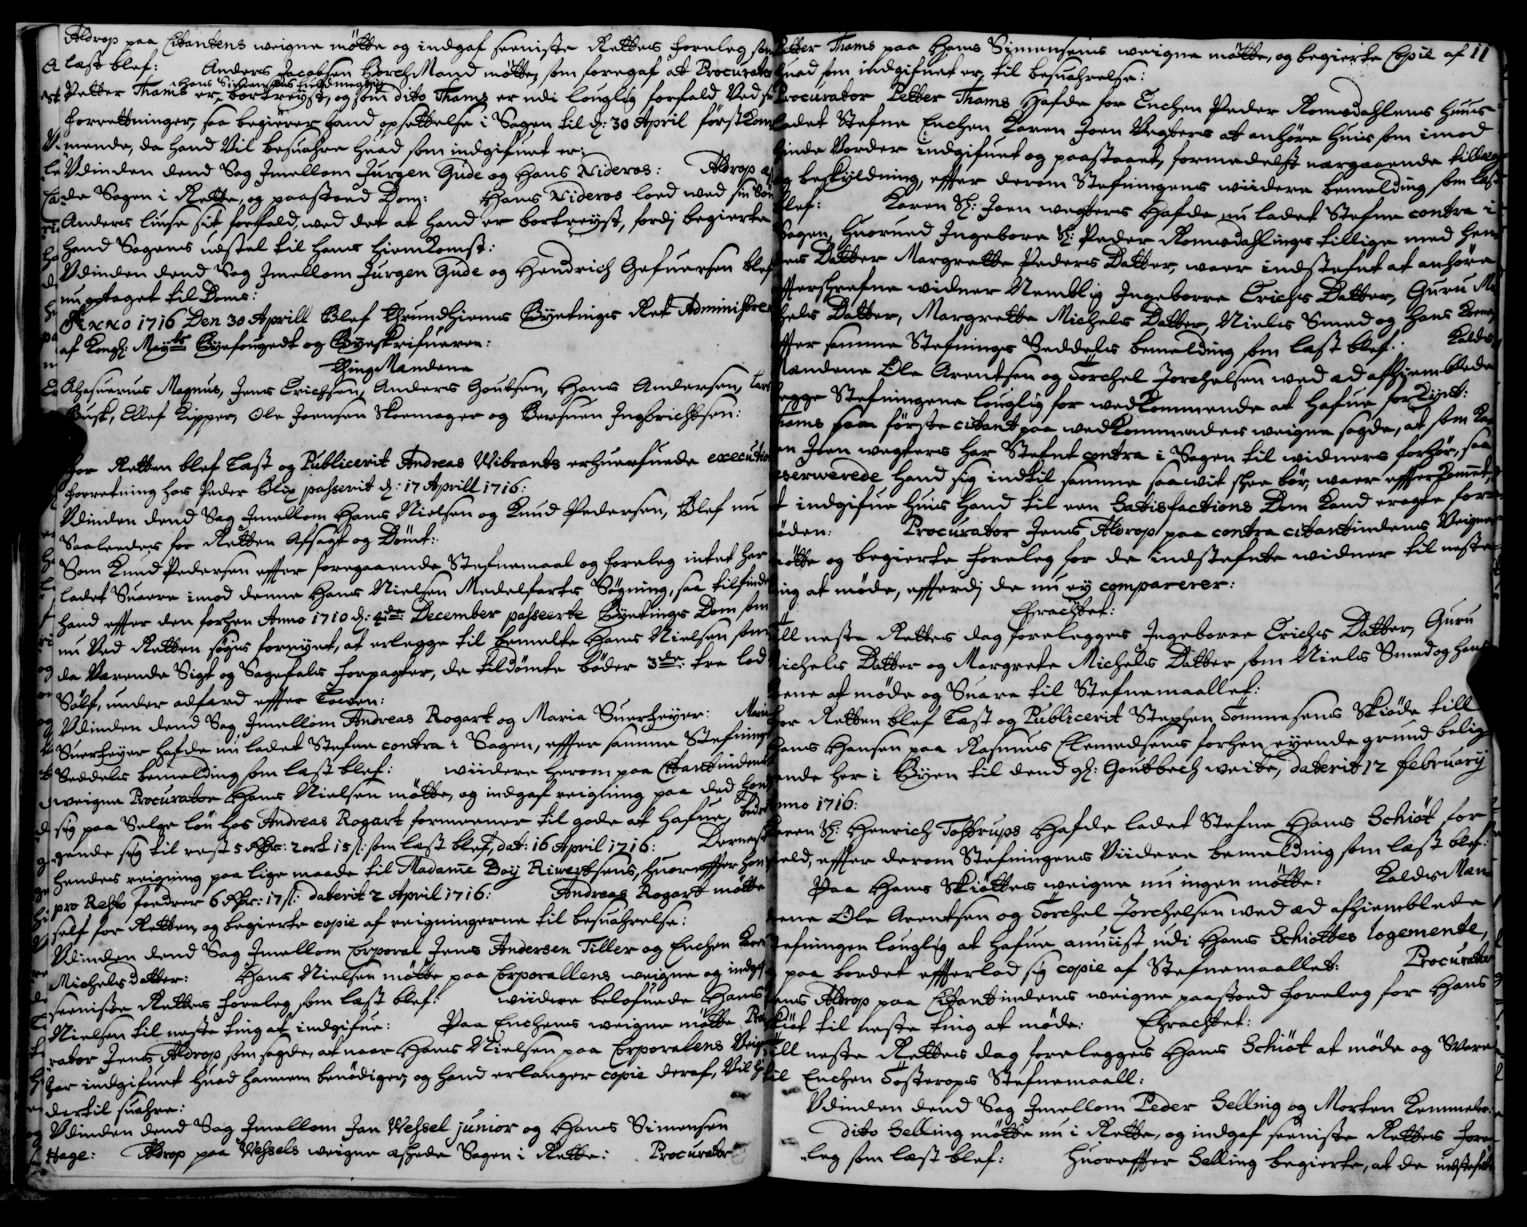 Aldrop paa Citantens weigne mötte og indgaf seeniste Rettes foreleg som
læst blef: Anders Jacobsen Horch Mand mötte, som foregaf at Procurator
Petter Thams er bortreyst, og som dito Thams er udi louglig forfald Ved
forrettninger, saa begiærer hand opsettelse i Sagen til d: 30 April först Kom
mende, da hand Vil besuahre huad som indgifuet er:
Udinden dend Sag Imellom Jürgen Gude og Hans Nideros: Aldrop
de Sagen i Rette, og paastoed Dom: Hans Nideros loed ved sin Sön
Anders liuse sit forfald, ved det at hand er bortreyst, fordj begierte
hand Sagens udstel til hans hiem Komst:
Udinden dend Sag Imellom Jürgen Gude og Hendrich Gefuersen blef
nu optaget til Doms:
Anno 1716 Den 30 Aprill Blef Trundhiems Byetings Ret Administreret
af Kongl: Mayts Byefougedt og Byeskrifueren:
Ting Mændene
Ahasuerus Magnus, Jens Erichsen, Anders Goubsen, Hans Andersen, Lars
Busk, Ellef Kipper, Ole Joensen Skomager og Berfuen Ingbrichtsen:
For Retten blef Læst og Publicerit Andreas Wibrants erhuerfuede execution
forretning hos Peder Blix passerit d: 17 Aprill 1716:
Udinden dend Sag Imellom Hans Nielsen og Knud Pedersen, Blef nu
Saaleedes for Retten Afsagt og Dömt:
Som Knud Pedersen effter foregaaende Stefnemaal og foreleg intet har
ladet Suare imod denne Hans Nielsen Medelfarts Sögning, saa tilfinde
hand effter den forhen Anno 1710 d: 4de December passerte Byetings Dom, som
nu Ved Retten söges fornyet, at erlegge til bemelte Hans Nielsen som
da Varende Sigt og Sagefals forpagter, de tildömte böder 3de tre lod
Sölf, under adfærd effter Lowen:
Udinden dend Sag Imellom Andreas Rogart og Maria Suerfeyer: Maria
Suerfeyer hafde nu ladet Stefne contra i Sagen, effter samme Stefnings
Seddels bemelding som læst blef: widere herom paa Citantindens
weigne Procurator Hans Nielsen mötte, og indgaf reigning paa ded hon
sig paa Selge lön hos Andreas Rogart formeener til gode at hafue, bedra
gende sig til rest 5 Rdr: 2 ort 15 s: som læst blef, dat: 16 April 1716: Dernest
hendes reigning paa lige maade til Madame Doy Riwertsens, huoreffter hon
pro Resto fordrer 6 Rdr: 17 s: daterit 2 April 1716: Andreas Rogart mötte
self for Retten, og begierte copie af reigningerne til besuahrelse:
Udinden dend Sag Imellom Corporal Jens Andersen Tiller og Enchen Karen
Michelsdatter: Hans Nielsen mötte paa Corporallens weigne og indgaf
seeniste Rettes foreleg som læst blef: widere belofuede Hans
Nielsen til neste ting at indgifue: Paa Enchens weigne mötte Procu
rator Jens Aldrop som sagde, at naar Hans Nielsen paa Corporalens Veigne
har indgifuet huad hannem benödiges, og hand erlanger copie deraf, Vil hand
dertil suahre:
Udinden dend Sag Imellom Jan Wessel junior og Hans Simensen
Hage: Aldrop paa Wessels weigne eskede Sagen i Rette: Procurator
Petter Thams paa Hans Simensens weigne mötte, og begierte Copie af 11
huad som indgifuet er, til besuahrelse:
Procurator Petter Thams hafde for Enchen Peder Romsdahlens huus
ladet Stefne Enchen Karen Joen Vegters at anhöre huis som imod
hinde Vorder indgifuet og paastaaet, formedelst nærgaaende tillæg
og beskyldning, effter derom Stefningens widere bemelding som læst
blef: Karen Sl: Joen wegters hafde nu ladet Stefne contra i
Sagen, huorued Ingebore Sl: Peder Romsdahlings tillige med hen
des Datter Margrette Peders Datter, waer indstefnt at anhöre
effterschrefne widner Nemblig Ingeborre Erichs Datter, Guru Mi
chels Datter, Margrette Michels Datter, Niels Smed og Hans Kone
effter samme Stefnings Seddels bemelding som læst blef: Kalds
Mændene Ole Arentsen og Torchel Jorchelsen wed æd afhiemblede
begge Stefningene louglig for wedkommende at hafue forkynt:
Thams som förste citant paa wedkommendes weigne sagde, at som Ka
ren Joen wegters har Stefnt contra i Sagen til widners forhör, saa
reserwerede hand sig indtil samme saawit skee bör, waer effter Kommet,
at indgifue huis hand til een Satisfactions Dom Kand eragte for
nöden: Procurator Jens Aldrop paa contra citantindens Veigne
mötte og begierte foreleg for de indstefnte widner til neste
ting at möde, efftersj de nu ey comparerer:
Eragtet:
Till neste Rettes dag forelegges Ingeborre Erichs Datter, Guru
Michels Datter og Margrete Michels Datter som Niels Smed og Hans
Kone at möde og Suare til Stefnemaallet:
For Retten blef Læst og Publicerit Stephen Tommesens Skiöde till
Hans Hansen paa Rasmus Clemedsens forhen eyende grund belig
gende her i Byen til dend gl: Goutbech weite, daterit 12 February
Anno 1716:
Karen Sl: Henrich Tosterups hafde ladet Stefne Hans Schiöt for
gield, effter derom Stefningens Viidere bemelding som læst blef:
Paa Hans Skiöttes weigne nu ingen mötte: Kalds Mæn
dene Ole Arentsen og Torchel Jorchelsen wed æd afhiemblede
Stefningen louglig at hafue anuiist udi Hans Schiöttes logemente,
og paa bordet effterlod sig copie af Stefnemaallet: Procurator
Jens Aldrop paa Citantindens weigne paastoed foreleg for Hans
Skiöt til neste ting at möde: Eragtet:
Till neste Rettes dag forelegges Hans Schiöt at möde og Svare
til Enchen Tosterops Stefnemaall:
Udinden dend Sag Imellom Peder Selling og Morten Kemmeler:
Dito Selling mötte nu i Rette, og indgaf seeniste Rettes fore
leg som læst blef: Huoreffter Selling begierte, at de indstefnte